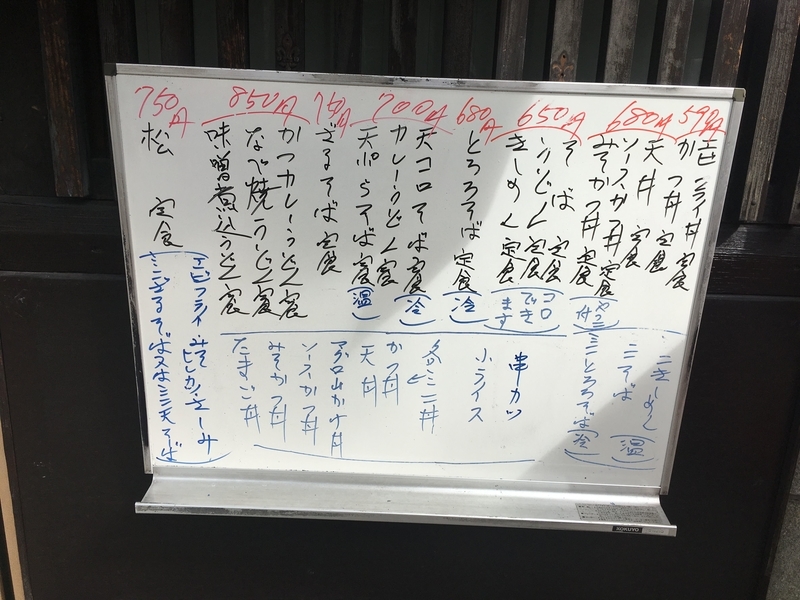 590円
エビフライ丼 定食
かつ丼 定食
680円
天丼 定食
ソースかつ丼 定食
みそかつ丼 定食
650円
そば 定食
うどん 定食
きしめん 定食
680円
とろろそば 定食 (冷)
700円
天コロそば 定食 (冷)
カレーうどん 定食
天ぷらそば 定食 (温)
750円
ざるそば 定食
850円
かつカレーうどん 定食
なべ焼うどん 定食
味噌煮込うどん 定食
750円
松 定食
(エビフライ・みそヒレカツ・さしみ
ミニざるそば又はミニ天そば)
コロ
でき
ます
やっこ
付
ミニきしめん
ミニそば (温)
ミニとろろそば (冷)
串カツ
小ライス
各ミニ丼
かつ丼
天丼
マグロ山かけ丼
ソースかつ丼
みそかつ丼
たまご丼
KOKUYO